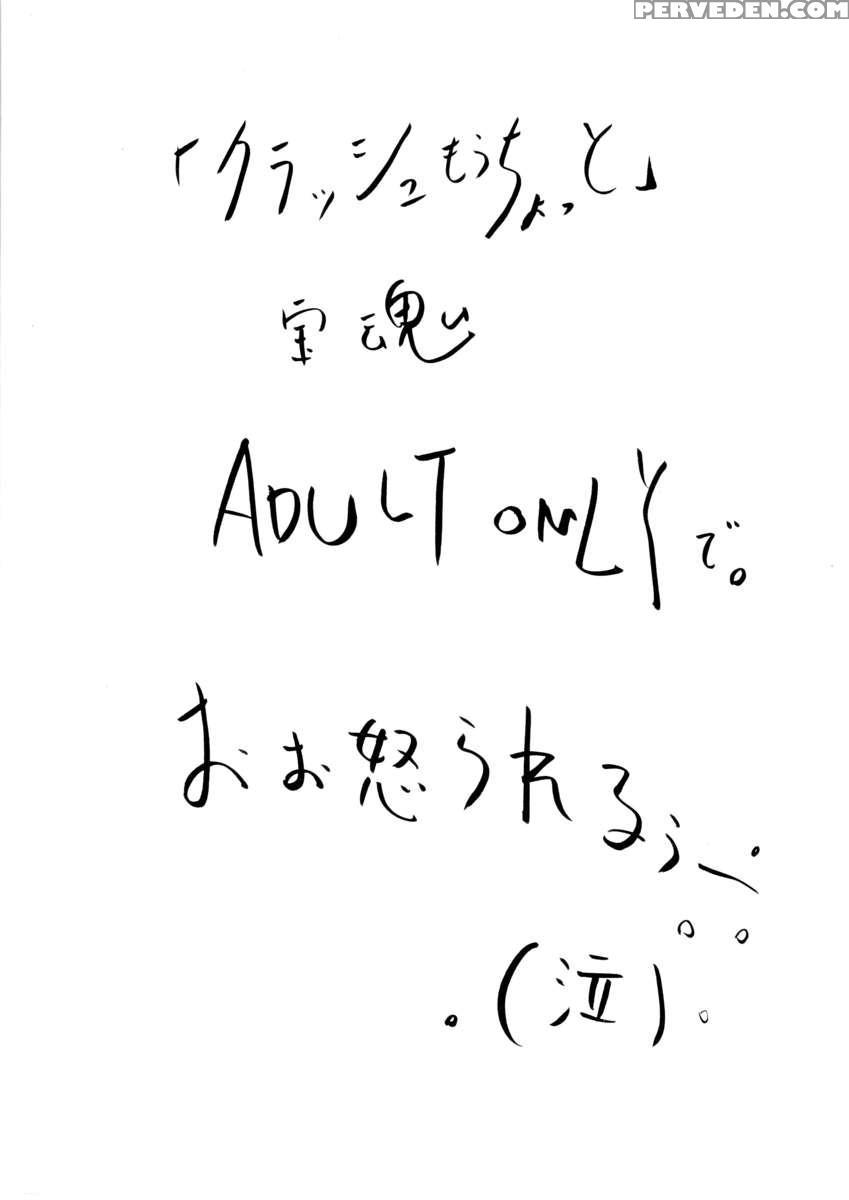 PERVEDEN.COM
「クラッシュもうちょっと」
宝魂
ADULT ONLYで。
おお怒られるぅ〜。
。(泣)。